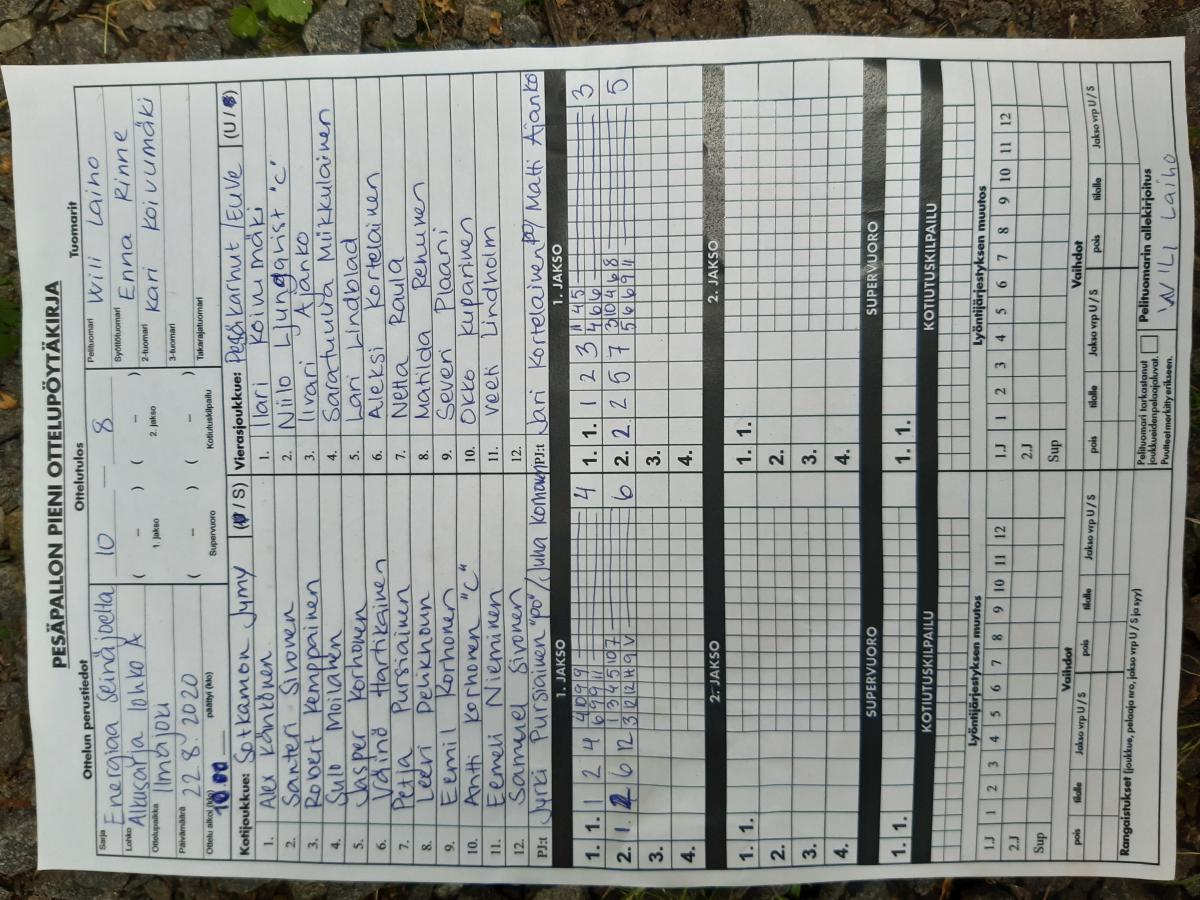 PESÄPALLON PIENI OTTELUPÖYTÄKIRJA
Ottelun perustiedot
Ottelutulos
Tuomarit
Sarja Energiaa Seinäjoelta
Lohko Alkusarja lohko A
Ottelupaikka Ilmajoki
Päivämäärä 22.8.2020
Ottelu alkoi (klo) päättyi (klo)
10 — 8
( – ) ( – )
1. jakso 2. jakso
( – ) ( – )
Supervuoro Kotiutuskilpailu
Pelituomari Wili Laiho
Syöttötuomari Enna Rinne
2-tuomari Kari Koivumäki
3-tuomari
Takarajatuomari
Kotijoukkue: Sotkamon Jymy (U / S)
1. Alex Könkönen
2. Santeri Sivonen
3. Robert Kemppainen
4. Sulo Moilanen
5. Jasper Korhonen
6. Väinö Hartikainen
7. Petja Pursiainen
8. Leevi Delikhoun
9. Eemil Korhonen
10. Antti Korhonen "C"
11. Eemeli Nieminen
12. Samuel Sivonen
PJ:t Jyrki Pursiainen "po"/Juha Korhonen
Vierasjoukkue: Pesäkarhut/EuVe (U / S)
1. Ilari Koivumäki
2. Niilo Ljungqvist "C"
3. Iivari Ajanko
4. Saratuulia Miikkulainen
5. Lari Lindblad
6. Aleksi Kortelainen
7. Netta Raula
8. Matilda Renvinen
9. Severi Plaani
10. Okko Kuparinen
11. Veeti Lindholm
12.
PJ:t Jari Kortelainen po/Matti Ajanko
1. JAKSO 1. JAKSO
1. 1. 1 2 4 4 10 9 9 4
6 9 9 11
2. 1. 6 12 1 3 4 5 10 7 6
3.
4.
1. 1. 1 2 3 11 4 5 3
4 6 6
2. 2. 2 5 7 3 10 4 6 8 5
5 6 6 9 11
3.
4.
2. JAKSO 2. JAKSO
1. 1. 1. 1.
2. 2.
3. 3.
4. 4.
SUPERVUORO SUPERVUORO
1. 1. 1. 1.
KOTIUTUSKILPAILU KOTIUTUSKILPAILU
Lyöntijärjestyksen muutos Lyöntijärjestyksen muutos
1.J 1 2 3 4 5 6 7 8 9 10 11 12
2.J
Sup
1.J 1 2 3 4 5 6 7 8 9 10 11 12
2.J
Sup
Vaihdot Vaihdot
pois tilalle Jakso vrp U / S pois tilalle Jakso vrp U / S
pois tilalle Jakso vrp U / S pois tilalle Jakso vrp U / S
Rangaistukset (joukkue, pelaaja nro, jakso vrp U / S ja syy)
Pelituomari tarkastanut
joukkueiden pelaajaluvat.
Puutteet merkitty erikseen.
Pelituomarin allekirjoitus
Wili Laiho